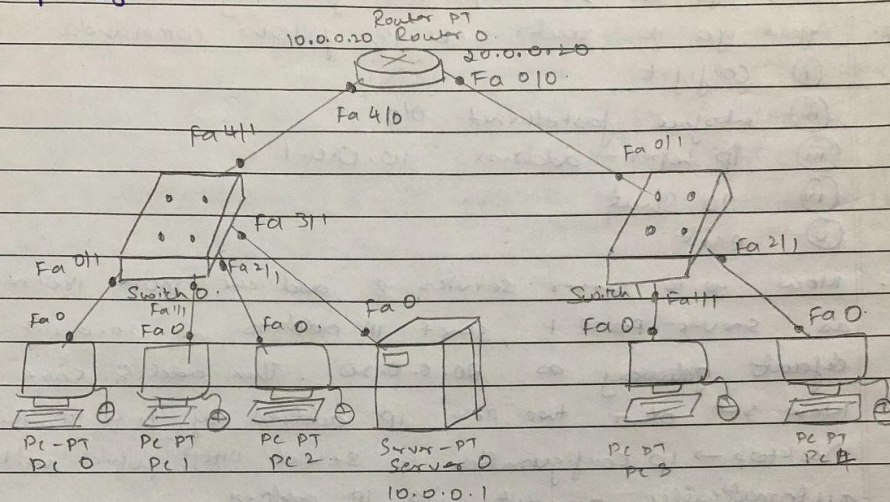 Router PT
10.0.0.20 Router 0
20.0.0.20
Fa 0/0
Fa 4/0
Fa 4/1
Fa 0/1
Fa 3/1
Fa 0/1
Fa 2/1
Fa 2/1
Switch 0
Switch 1
Fa 1/1
Fa 1/1
Fa 0
Fa 0
Fa 0
Fa 0
Fa 0
Fa 0
PC-PT
PC 0
PC PT
PC 1
PC PT
PC 2
Server-PT
Server 0
10.0.0.1
PC PT
PC 3
PC PT
PC 4